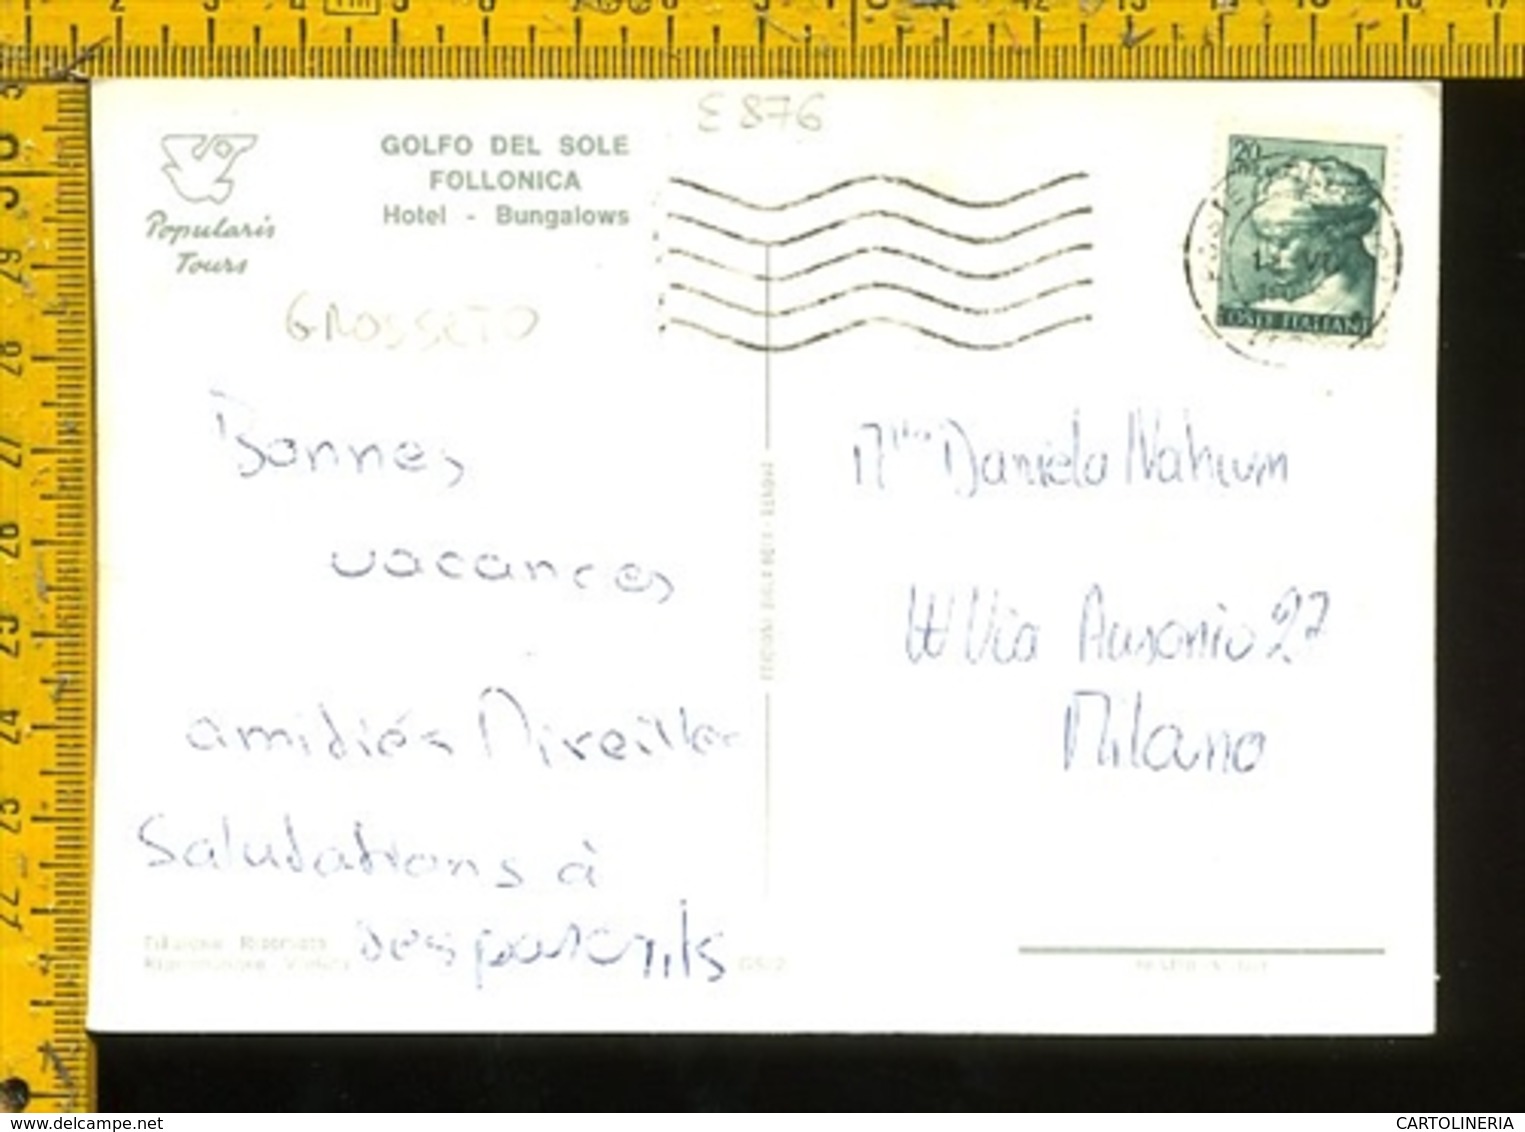 E 876
GOLFO DEL SOLE
FOLLONICA
Hotel - Bungalows
Popularis
Tours
GROSSETO
20
POSTE ITALIANE
Bonnes
vacances
amitiés Mireille
Salutations à
tes parents
Mlle Daniela Nahum
Via Ausonio 27
Milano
www.delcampe.net
CARTOLINERIA